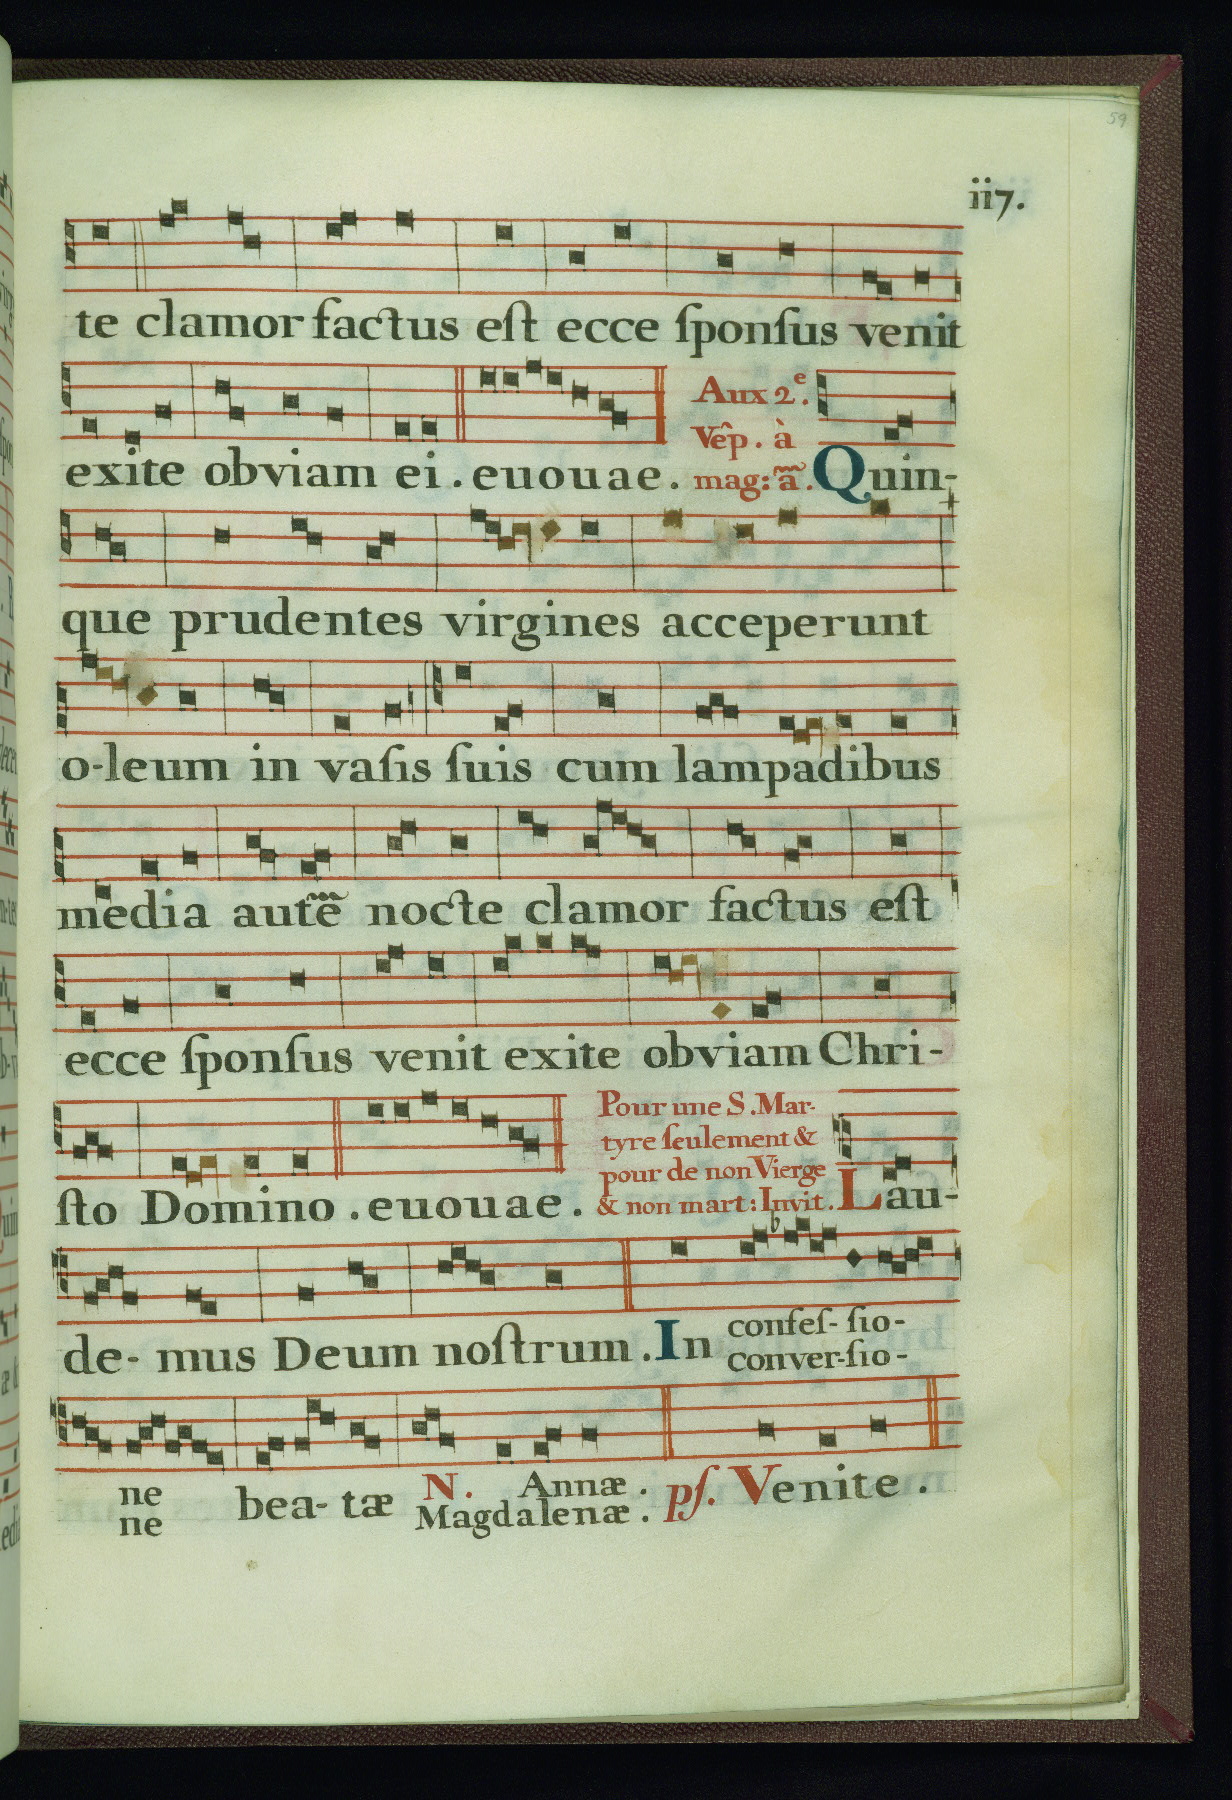 59
ii7.
te clamor factus eſt ecce ſponſus venit
exite obviam ei . euouae . Aux 2e. Vêp . à mag: ã . Quin-
que prudentes virgines acceperunt
o-leum in vaſis ſuis cum lampadibus
media autẽ nocte clamor factus eſt
ecce ſponſus venit exite obviam Chri-
ſto Domino . euouae . Pour une S . Mar- tyre ſeulement & pour de non Vierge & non mart : Invit . Lau-
de- mus Deum noſtrum . In confeſ- ſio-
conver-ſio-
ne bea- tæ N . Annæ . pſ. Venite .
ne Magdalenæ .